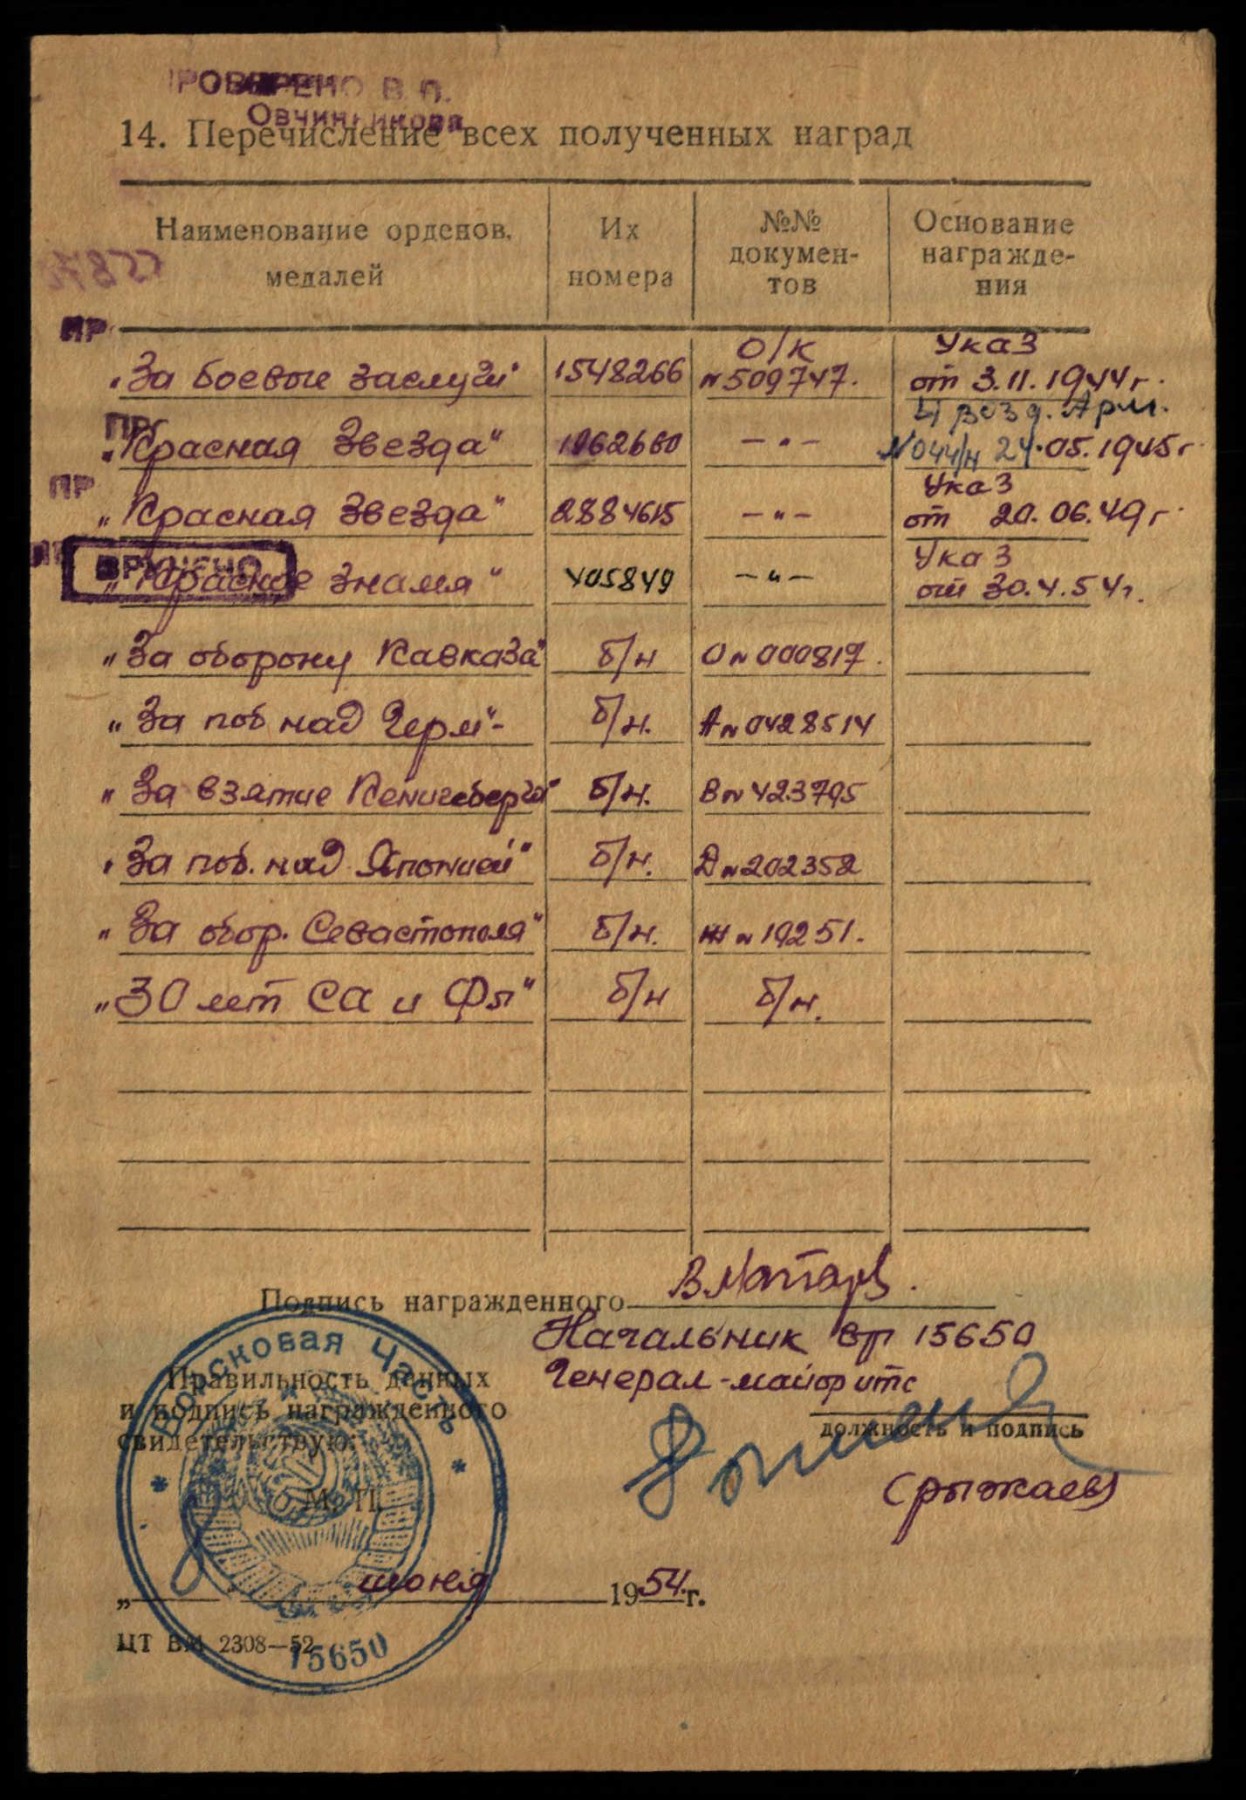 ПРОВЕРЕНО В. П.
Овчинникова
14. Перечисление всех полученных наград
Наименование орденов, медалей
Их номера
№№ докумен-
тов
Основание награжде-
ния
ПР
„За боевые заслуги" 1548266 О/К №509747. Указ от 3.11.1944 г.
ПР
„Красная Звезда" 1962660 – " – 4 возд. Арм. №044/н 24.05.1945 г
ПР
„Красная Звезда" 2884615 – " – Указ от 20.06.49 г.
ВРУЧЕНО
„Красное Знамя" 405849 – " – Указ от 30.4.54 г.
„За оборону Кавказа" б/н О №000817.
„За поб над Герм" б/н. А №0428514
„За взятие Кенигсберга" б/н. В №423795
„За поб. над Японией" б/н. Д №202352
„За обор. Севастополя" б/н. Ж №19251.
„30 лет СА и Фл" б/н б/н.
Подпись награжденного
Начальник вч 15650
Генерал-майор итс
Правильность данных
и подпись награжденного
свидетельствую:
должность и подпись
(Рыжаев)
М. П.
„ июня 1954 г.
ЦТ ВМ 2308—52
Войсковая Часть
15650